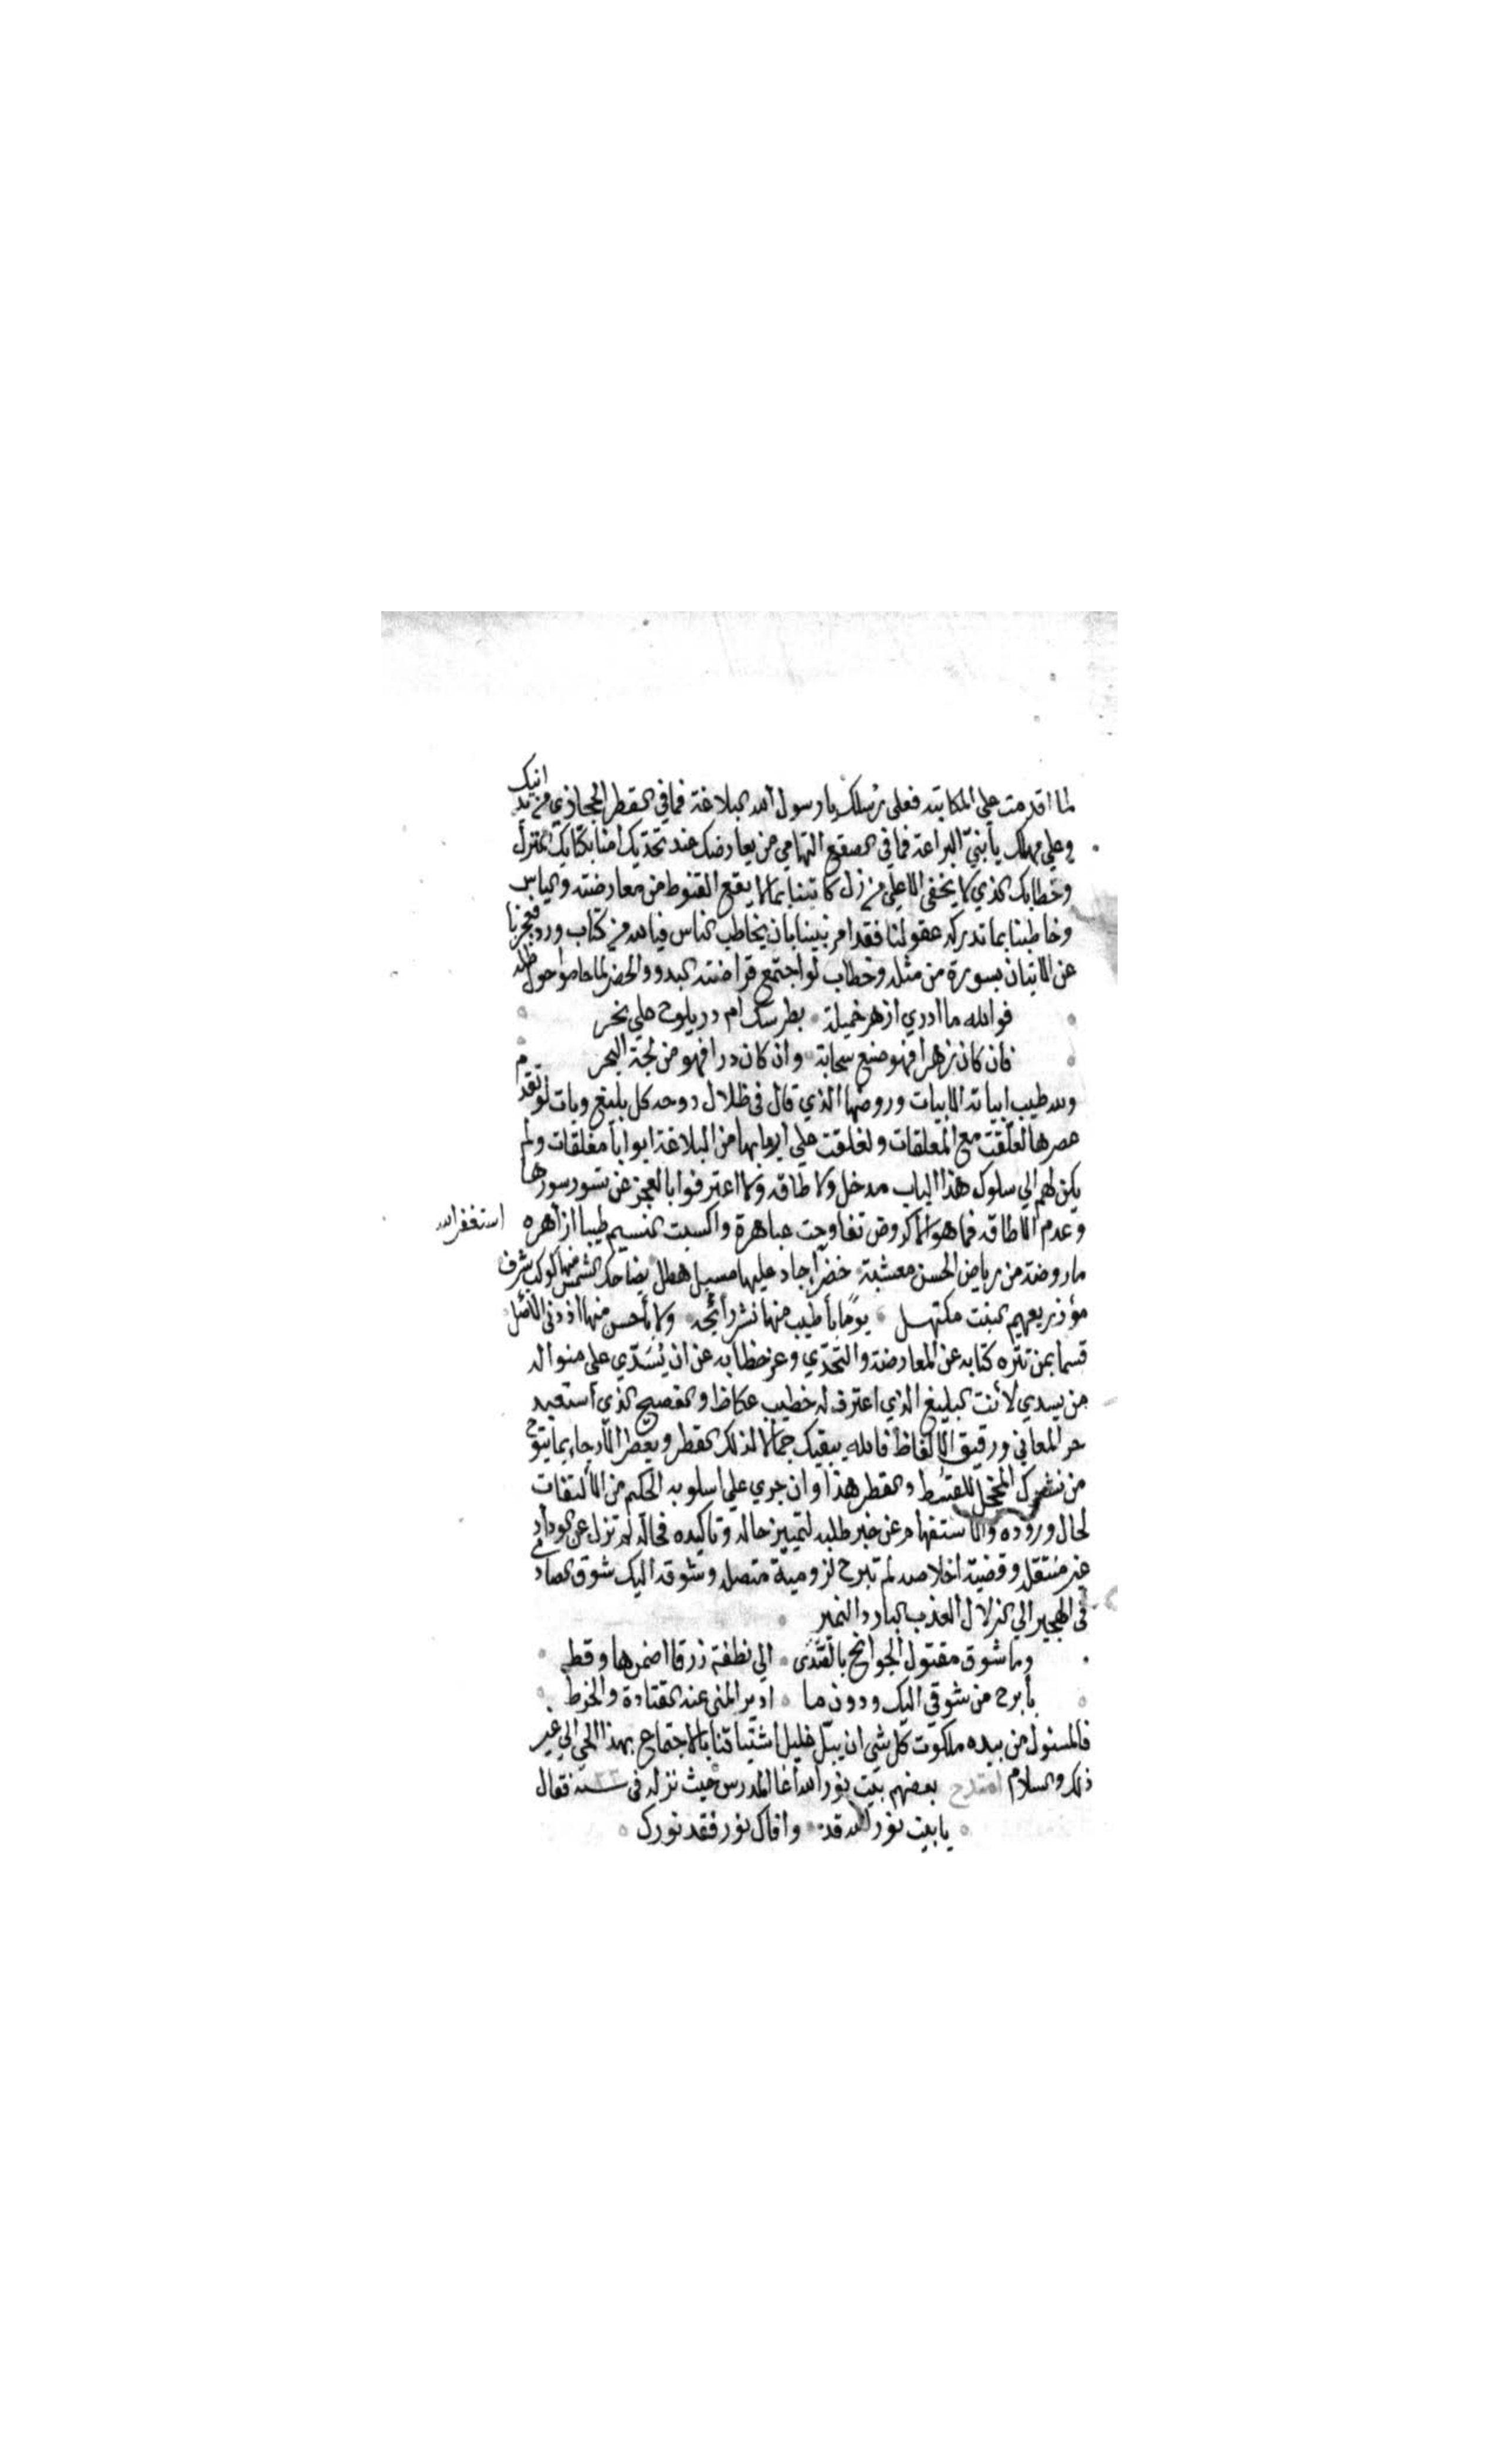 لما اقدمت علي المكاتبه فعلي رسلك يا رسول هذه البلاغة فما في القطر الحجازي من يدانيك
وعلي مهلك يا بنيّ البراعة فما في الصقع التهامي من يعارضك عند تحديك امنا بكتابك المنزل
وخطابك الذي لا يخفى الا علي من زل كاتبنا بما لا يقع القنوط من معارضته والياس
وخاطبنا بما تدركه عقولنا فقد امر نبينا بان يخاطب الناس فيا لله من كتاب ورد فعجزنا
عن الاتيان بسورة من مثله وخطاب لو اجتمع قراضنة البدو والحضر لما حاموا حول ظله
فوالله ما ادري ازهر خميلة بطرسك ام در يلوح علي نحر
فان كان زهرا فهو صنع سحابة وان كان درا فهو من لجة البحر
ولله طيب ابياته الابيات وروضها الذي قال في ظلال دوحه كل بليغ وبات لو تقدم
عصرها لعلّقت مع المعلقات ولغلقت علي ابوابها من البلاغة ابوابا مغلقات ولم
يكن لهم الي سلوك هذا الباب مدخل ولا طاقه ولا اعترفوا بالعجز عن تسور سورها
وعدم الاطاقه فما هو الا كروض تفاوحت عباهرة واكسبت النسيم طيبا ازاهره استغفر الله
ما روضة من رياض الحسن معشبة خضرا جاد عليها مسبل هطل يضاحك الشمس منها كوكب شرق
مؤزر بعميم النبت مكتهل يوما بأطيب منها نشر رائحه ولا بأحسن منها اذ دنى الاصل
قسما بمن تنزه كتابه عن المعارضة والتحدّي وعز خطابه عن ان يُسَدّي علي منواله
من يسدي لأنت البليغ الذي اعترف له خطيب عكاظ والفصيح الذي استعبد
حر المعاني ورقيق الالفاظ فالله يبقيك جمالا لذلك القطر ويعطر الارجاء بما يتوح
من نشرك المخجل للقسط والقطر هذا وان جري علي اسلوبه الحكيم من الالتفات
لحال وروده والاستفهام عن خبر طلبه لتمييز حاله وتاكيده فحاله لم تزل عن الوداد
غير منتقله وقضية اخلاصه لم تبرح لزومية متصله وشوقه اليك شوق الصادي
في الهجير الي الزلال العذب البارد النمير
وما شوق مقتول الجوانح بالصدى الي نطفة زرقا اضمرها وقط
بأبرح من شوقي اليك ودون ما ادير المني عنه القتادة والخرط
فالمسئول من بيده ملكوت كل شي ان يبل غليل اشتياقنا بالاجتماع بهذا الحي الي غير
ذلك والسلام امتدح بعضهم بيت نور الله اغا المدرس حيث نزله في سنة فقال
يا بيت نور الله قد وافاك نور فقد نورك